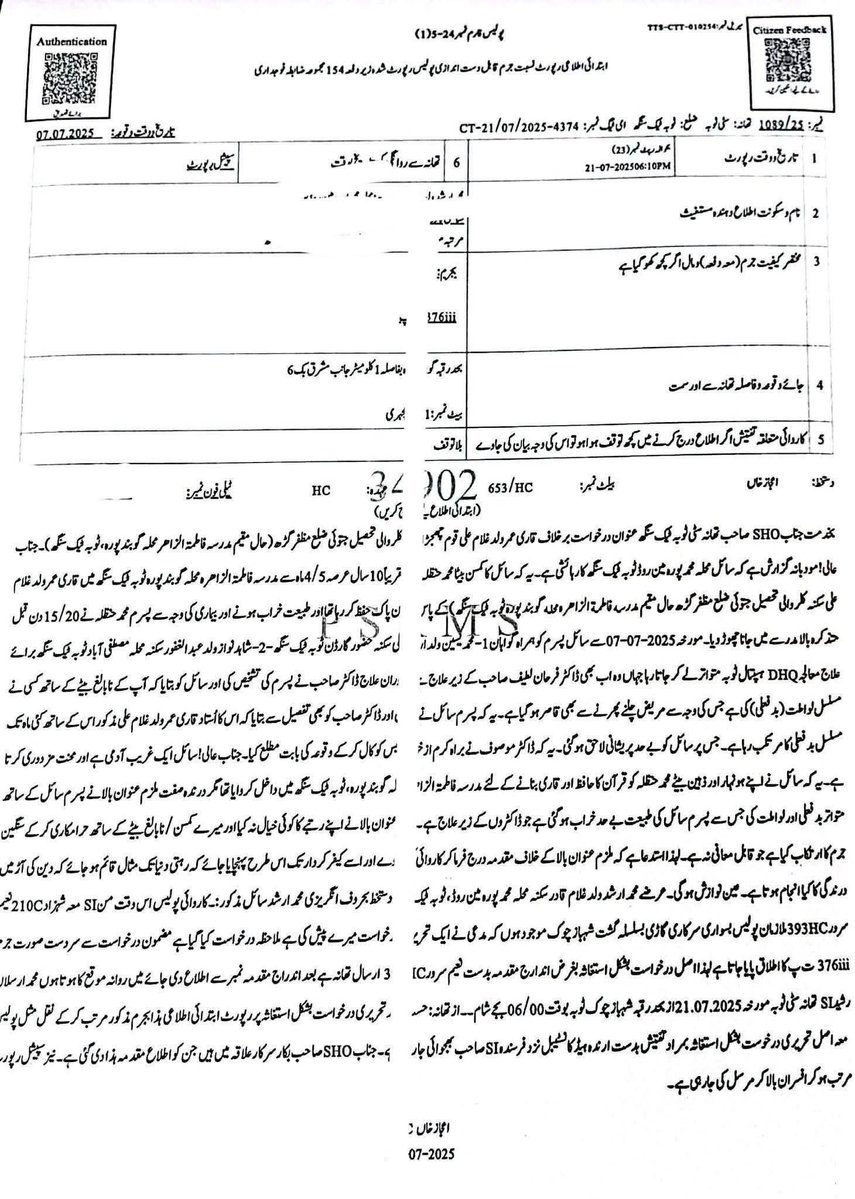 پولیس فارم نمبر 24-5(1)
سیریل نمبر: TTS-CTT-010254
Authentication
Citizen Feedback
ابتدائی اطلاعی رپورٹ نسبت جرم قابل دست اندازی پولیس رپورٹ شدہ زیر دفعہ 154 مجموعہ ضابطہ فوجداری
نمبر: 1089/25 تھانہ: سٹی ٹوبہ ضلع: ٹوبہ ٹیک سنگھ ای ٹیگ نمبر: CT-21/07/2025-4374 تاریخ و وقت وقوعہ: 07.07.2025
1 تاریخ و وقت رپورٹ
(23)
21-07-2025 06:10PM
6 تھانہ سے روانگی وقت
سپیشل رپورٹ
2 نام و سکونت اطلاع دہندہ مستغیث
3 مختصر کیفیت جرم (معہ دفعہ) و مال اگر کچھ کھو گیا ہے
بجرم:
376iii
4 جائے وقوعہ و فاصلہ تھانہ سے اور سمت
بحد رقبہ بفاصلہ 1 کلومیٹر جانب مشرق بک 6
بیٹ نمبر: 1
5 کاروائی متعلقہ تفتیش اگر اطلاع درج کرنے میں کچھ توقف ہوا ہو تو اس کی وجہ بیان کی جاوے
بلا توقف
دستخط: اعجاز خاں بیلٹ نمبر: 653/HC عہدہ: HC ٹیلی فون نمبر:
(ابتدائی اطلاع
بخدمت جناب SHO صاحب تھانہ سٹی ٹوبہ ٹیک سنگھ عنوان درخواست بر خلاف قاری عمر ولد غلام علی قوم کلر والی تحصیل جتوئی ضلع مظفر گڑھ (حال مقیم مدرسہ فاطمۃ الزاھرہ محلہ گوبند پورہ، ٹوبہ ٹیک سنگھ)۔ جناب
عالی! مودبانہ گزارش ہے کہ سائل محلہ محمد پورہ مین روڈ ٹوبہ ٹیک سنگھ کا رہائشی ہے۔ یہ کہ سائل کا کمسن بیٹا محمد حنظلہ قریباً 10 سال عرصہ 4/5 ماہ سے مدرسہ فاطمۃ الزاھرہ محلہ گوبند پورہ ٹوبہ ٹیک سنگھ میں قاری عمر ولد غلام
علی سکنہ کلر والی تحصیل جتوئی ضلع مظفر گڑھ حال مقیم مدرسہ فاطمۃ الزاھرہ محلہ گوبند پورہ ٹوبہ ٹیک سنگھ) کے پاس پاک حفظ کر رہا تھا اور طبیعت خراب ہونے اور بیماری کی وجہ سے پسرم محمد حنظلہ نے 15/20 دن قبل
متذکرہ بالا مدرسے میں جانا چھوڑ دیا۔ مورخہ 07-07-2025 سے سائل پسرم کو ہمراہ گواہان 1- محمد یٰسین ولد سکنہ حضور گارڈن ٹوبہ ٹیک سنگھ -2- شاہد نواز ولد عبدالغفور سکنہ محلہ مصطفی آباد ٹوبہ ٹیک سنگھ برائے
علاج معالجہ DHQ ہسپتال ٹوبہ متواتر لے کر جاتا رہا جہاں وہ اب بھی ڈاکٹر فرحان لطیف صاحب کے زیر علاج علاج ڈاکٹر صاحب نے پسرم کی تشخیص کی اور سائل کو بتایا کہ آپ کے نابالغ بیٹے کے ساتھ کسی نے
مسلسل لواطت (بدفعلی) کی ہے جس کی وجہ سے مریض چلنے پھرنے سے بھی قاصر ہو گیا ہے۔ یہ کہ پسرم سائل نے اور ڈاکٹر صاحب کو بھی تفصیل سے بتایا کہ اس کا اُستاد قاری عمر ولد غلام علی مذکور اس کے ساتھ کئی ماہ تک
مسلسل بدفعلی کا مرتکب رہا ہے۔ جس پر سائل کو بے حد پریشانی لاحق ہو گئی۔ یہ کہ ڈاکٹر موصوف نے براہ کرم از کو کال کر کے وقوعہ کی بابت مطلع کیا۔ جناب عالی! سائل ایک غریب آدمی ہے اور محنت مزدوری کرتا
ہے۔ یہ کہ سائل نے اپنے ہونہار اور ذہین بیٹے محمد حنظلہ کو قرآن کا حافظ اور قاری بنانے کے لئے مدرسہ فاطمۃ گوبند پورہ، ٹوبہ ٹیک سنگھ میں داخل کروایا تھا مگر درندہ صفت ملزم عنوان بالا نے پسرم سائل کے ساتھ
متواتر بدفعلی اور لواطت کی جس سے پسرم سائل کی طبیعت بے حد خراب ہو گئی ہے جو ڈاکٹروں کے زیر علاج ہے۔ عنوان بالا نے اپنے رتبے کا کوئی خیال نہ کیا اور میرے کمسن/نابالغ بیٹے کے ساتھ حرامکاری کر کے سنگین
جرم کا ارتکاب کیا ہے جو قابل معافی نہ ہے۔ لہذا استدعا ہے کہ ملزم عنوان بالا کے خلاف مقدمہ درج فرما کر کاروائی اور اسے کیفر کردار تک اس طرح پہنچایا جائے کہ رہتی دنیا تک مثال قائم ہو جائے کہ دین کی آڑ میں
درندگی کا کیا انجام ہوتا ہے۔ عین نوازش ہو گی۔ عرضے محمد ارشد ولد غلام قادر سکنہ محلہ محمد پورہ مین روڈ، ٹوبہ ٹیک دستخط بحروف انگریزی محمد ارشد سائل مذکور:۔ کاروائی پولیس اس وقت من SI معہ شہزاد 210C نعیم
سرور 393HC ملازمان پولیس بسواری سرکاری گاڑی بسلسلہ گشت شہباز چوک موجود ہوں کہ مدعی نے ایک درخواست میرے پیش کی ہے ملاحظہ درخواست کیا گیا ہے مضمون درخواست سے سردست صورت جرم
376iii ت پ کا اطلاق پایا جاتا ہے لہذا اصل درخواست بشکل استغاثہ بغرض اندارج مقدمہ بدست نعیم سرور ارسال تھانہ ہے بعد اندراج مقدمہ نمبر سے اطلاع دی جائے میں روانہ موقع کا ہوتا ہوں محمد ارسلان
رشید SI تھانہ سٹی ٹوبہ مورخہ 21.07.2025 از بحد رقبہ شہباز چوک ٹوبہ بوقت 06/00 بجے شام۔۔ از تھانہ: تحریری درخواست بشکل استغاثہ پر رپورٹ ابتدائی اطلاعی ہذا بجرم مذکور مرتب کر کے نقل مثل پولیس
معہ اصل تحریری درخواست بشکل استغاثہ بمراد تفتیش بدست ارندہ ہیڈ کانسٹیبل نزد فرسندہ SI صاحب بھجوائی جناب SHO صاحب بکار سرکار علاقہ میں ہیں جن کو اطلاع مقدمہ ہذا دی گئی ہے۔ نیز سپیشل رپورٹ
مرتب ہو کر افسران بالا کو مرسل کی جا رہی ہے۔
اعجاز خاں
07-2025